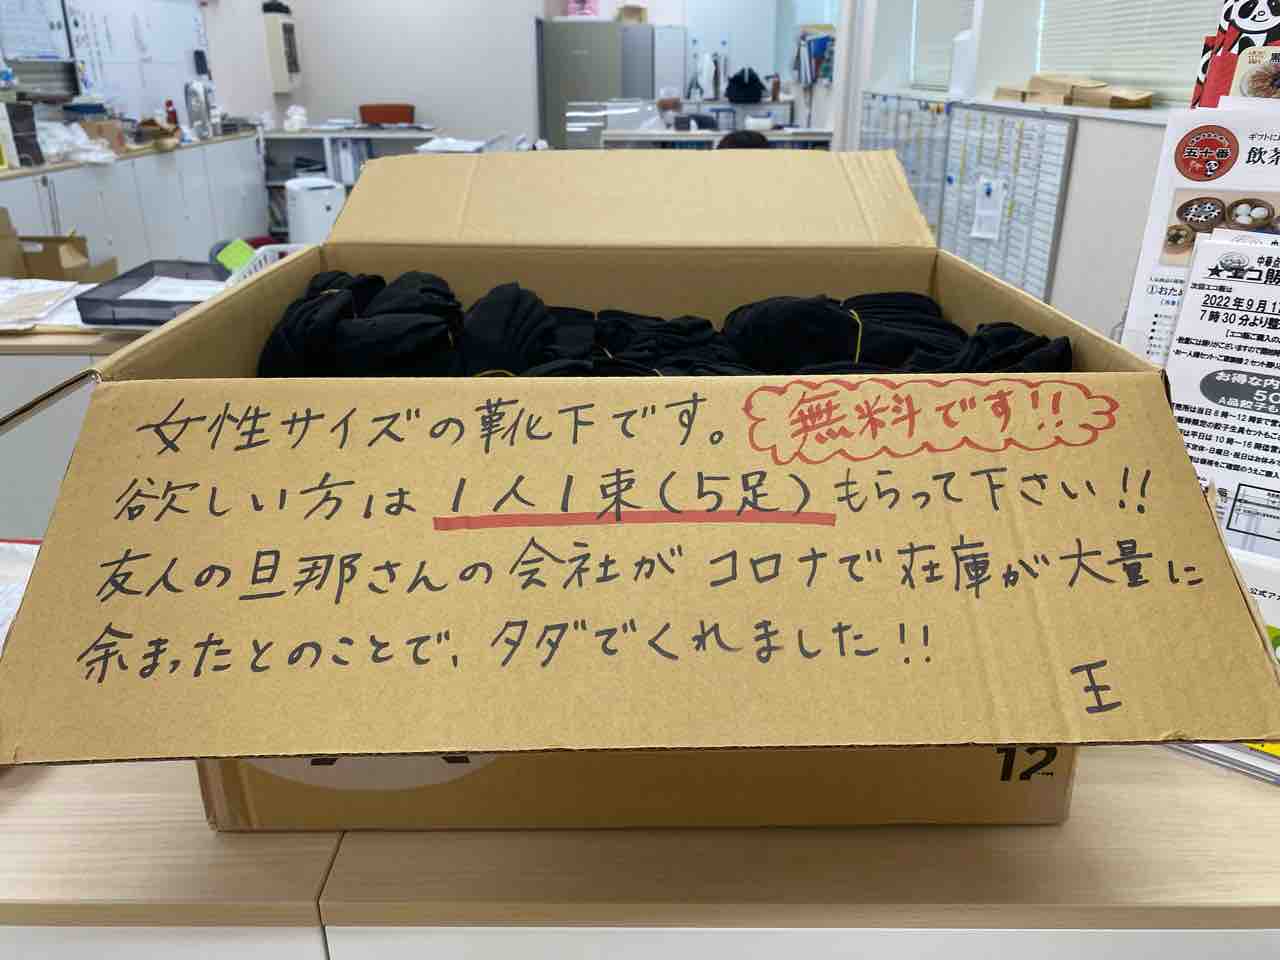 女性サイズの靴下です。 無料です!!
欲しい方は1人1束(5足)もらって下さい!!
友人の旦那さんの会社がコロナで在庫が大量に
余まったとのことで、タダでくれました!!
王
12
五十番
ギフトに
飲茶
★エコ飯
次回エコ飯は
2022年9月1
7時30分より
お得な内
50
A品餃子も
公式ア